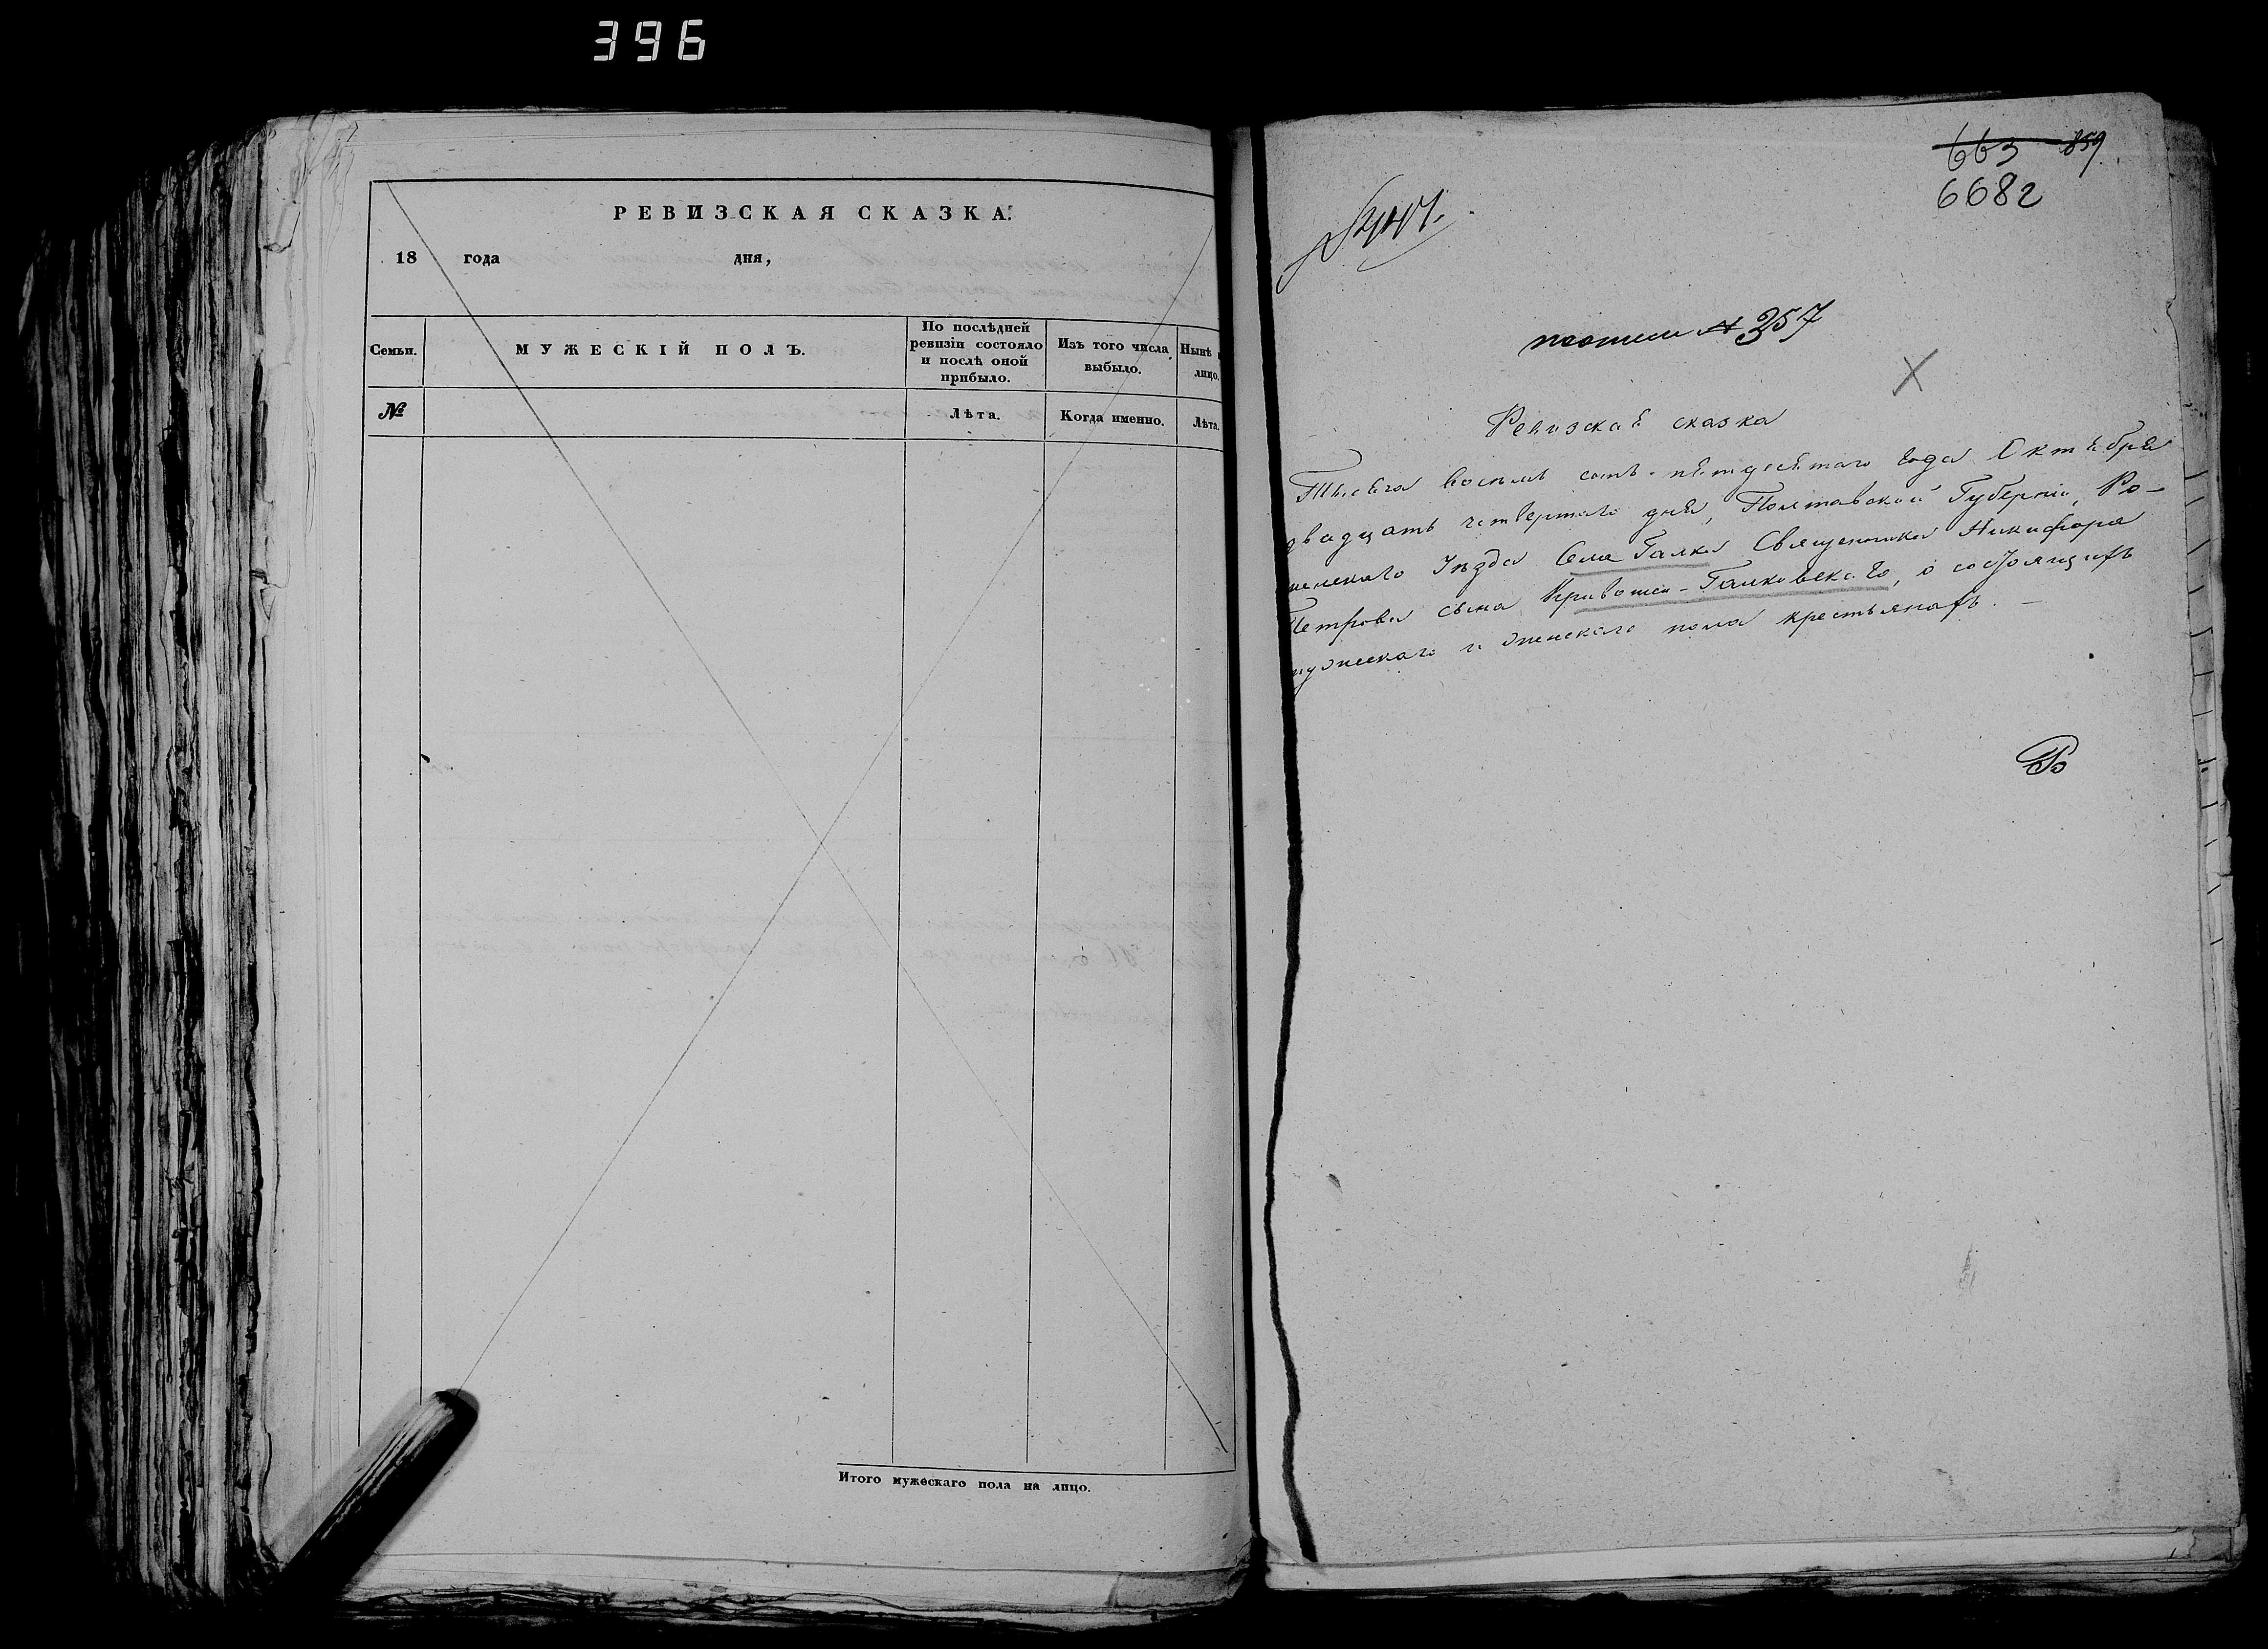 396
РЕВИЗСКАЯ СКАЗКА.
18 года дня,
Семьи.
МУЖЕСКІЙ ПОЛЪ.
По послѣдней
ревизіи состояло
и послѣ оной
прибыло.
Изъ того числа
выбыло.
Нынѣ
лицо.
№
Лѣта.
Когда именно.
Лѣта.
Итого мужескаго пола на лицо.
663 859
6682
№ 357
Ревизская сказка
Тысяча восемь сотъ пятдесятаго года Октября
двадцать четвертаго дня, Полтавской Губерніи, Ро-
менскаго Уѣзда Села Галки Священника Никифора
Петрова сына Кривошеи-Галковскаго, о состоящихъ
мужескаго и женскаго пола крестьянахъ. —